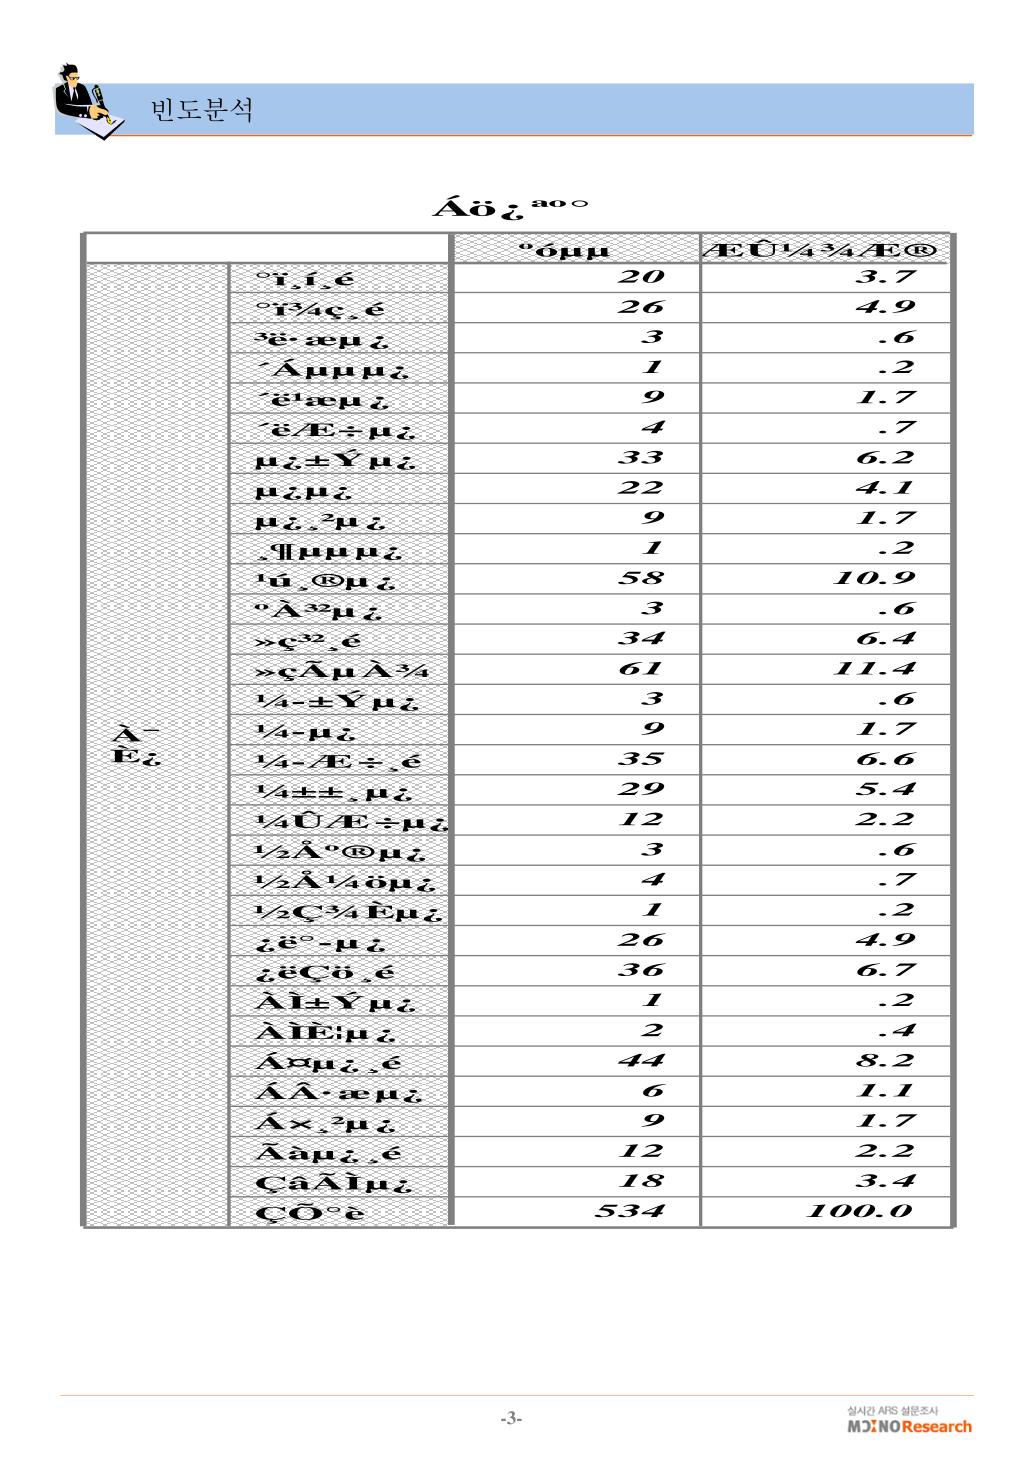 빈도분석
Áö¿ªº°
ºóµµ ÆÛ¼¾Æ®
À¯
È¿
°í¸í¸é 20 3.7
°ï¾ç¸é 26 4.9
³ë·æµ¿ 3 .6
´Áµµµ¿ 1 .2
´ë¹æµ¿ 9 1.7
´ëÆ÷µ¿ 4 .7
µ¿±Ýµ¿ 33 6.2
µ¿µ¿ 22 4.1
µ¿¸²µ¿ 9 1.7
¸¶µµµ¿ 1 .2
¹ú¸®µ¿ 58 10.9
ºÀ³²µ¿ 3 .6
»ç³²¸é 34 6.4
»çÃµÀ¾ 61 11.4
¼­±Ýµ¿ 3 .6
¼­µ¿ 9 1.7
¼­Æ÷¸é 35 6.6
¼±±¸µ¿ 29 5.4
¼ÛÆ÷µ¿ 12 2.2
½Åº®µ¿ 3 .6
½Å¼öµ¿ 4 .7
½Ç¾Èµ¿ 1 .2
¿ë°­µ¿ 26 4.9
¿ëÇö¸é 36 6.7
ÀÌ±Ýµ¿ 1 .2
ÀÌÈ¦µ¿ 2 .4
Á¤µ¿¸é 44 8.2
ÁÂ·æµ¿ 6 1.1
Á×¸²µ¿ 9 1.7
Ãàµ¿¸é 12 2.2
ÇâÃÌµ¿ 18 3.4
ÇÕ°è 534 100.0
-3-
실시간 ARS 설문조사
MONO Research